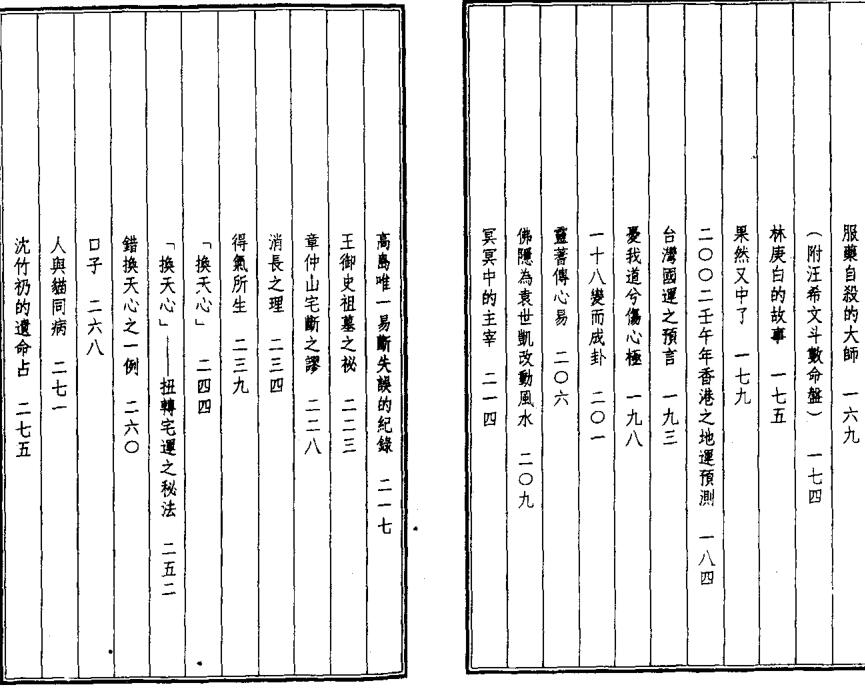 服藥自殺的大師　一六九
（附汪希文斗數命盤）　一七四
林庚白的故事　一七五
果然又中了　一七九
二〇〇二壬午年香港之地運預測　一八四
台灣國運之預言　一九三
憂我道兮傷心極　一九八
一十八變而成卦　二〇一
靈蓍傳心易　二〇六
佛隱為袁世凱改動風水　二〇九
冥冥中的主宰　二一四
高島唯一易斷失誤的紀錄　二一七
王御史祖墓之祕　二二三
章仲山宅斷之謬　二二八
消長之理　二三四
得氣所生　二三九
「換天心」　二四四
「換天心」——扭轉宅運之秘法　二五二
錯換天心之一例　二六〇
口子　二六八
人與貓同病　二七一
沈竹礽的遺命占　二七五